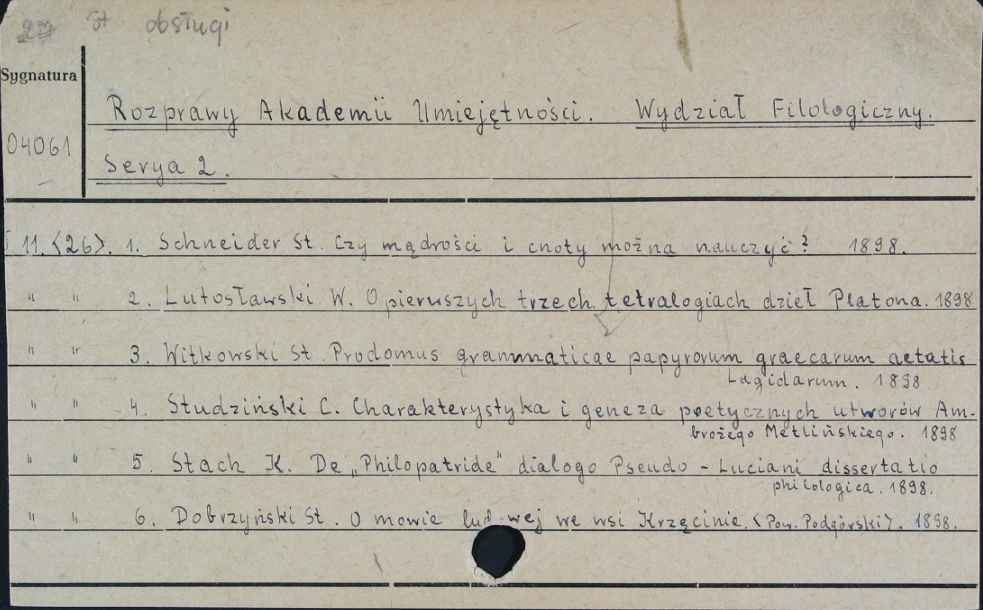 St obsługi
Sygnatura
Rozprawy Akademii Umiejętności. Wydział Filologiczny.
04061
Serya 2.
11.<26>. 1. Schneider St. Czy mądrości i cnoty można nauczyć? 1898.
" " 2. Lutosławski W. O pierwszych trzech tetralogiach dzieł Platona. 1898
" " 3. Witkowski St. Prodomus grammaticae papyrorum graecarum aetatis
Lagidarum. 1898
" " 4. Studziński C. Charakterystyka i geneza poetycznych utworów Am-
brożego Metlińskiego. 1898
" " 5. Stach K. De „Philopatride" dialogo Pseudo - Luciani dissertatio
philologica. 1898.
" " 6. Dobrzyński St. O mowie we wsi Krzęcinie. <Pow. Podgórski>. 1898.